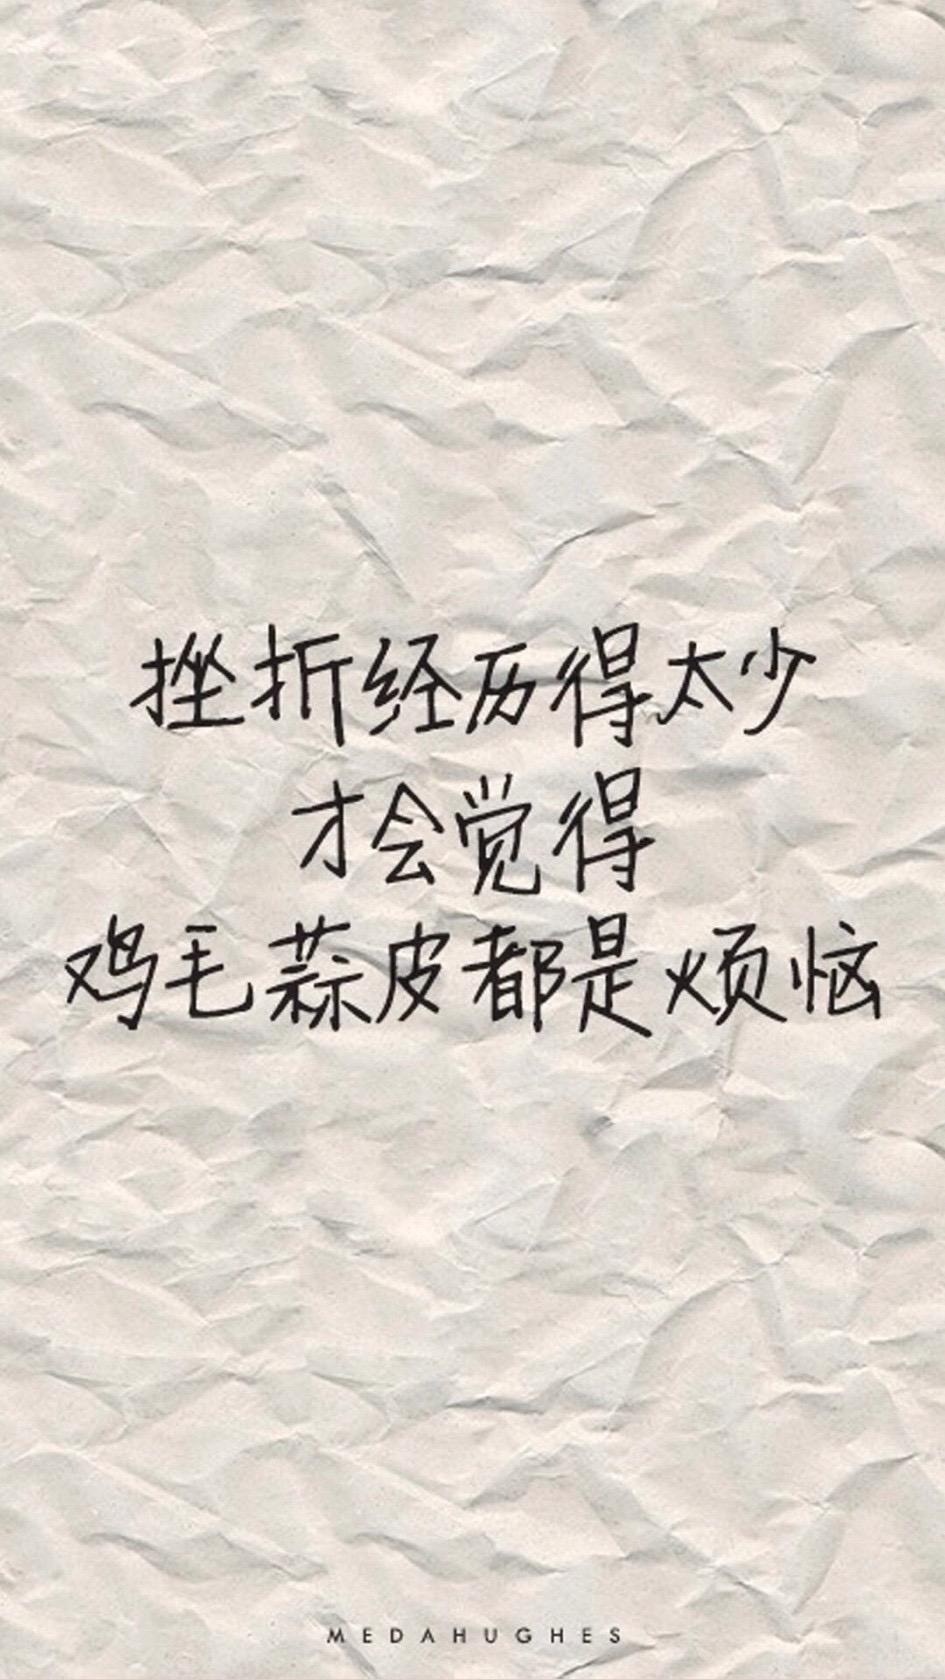 挫折经历得太少
才会觉得
鸡毛蒜皮都是烦恼
MEDAHUGHES